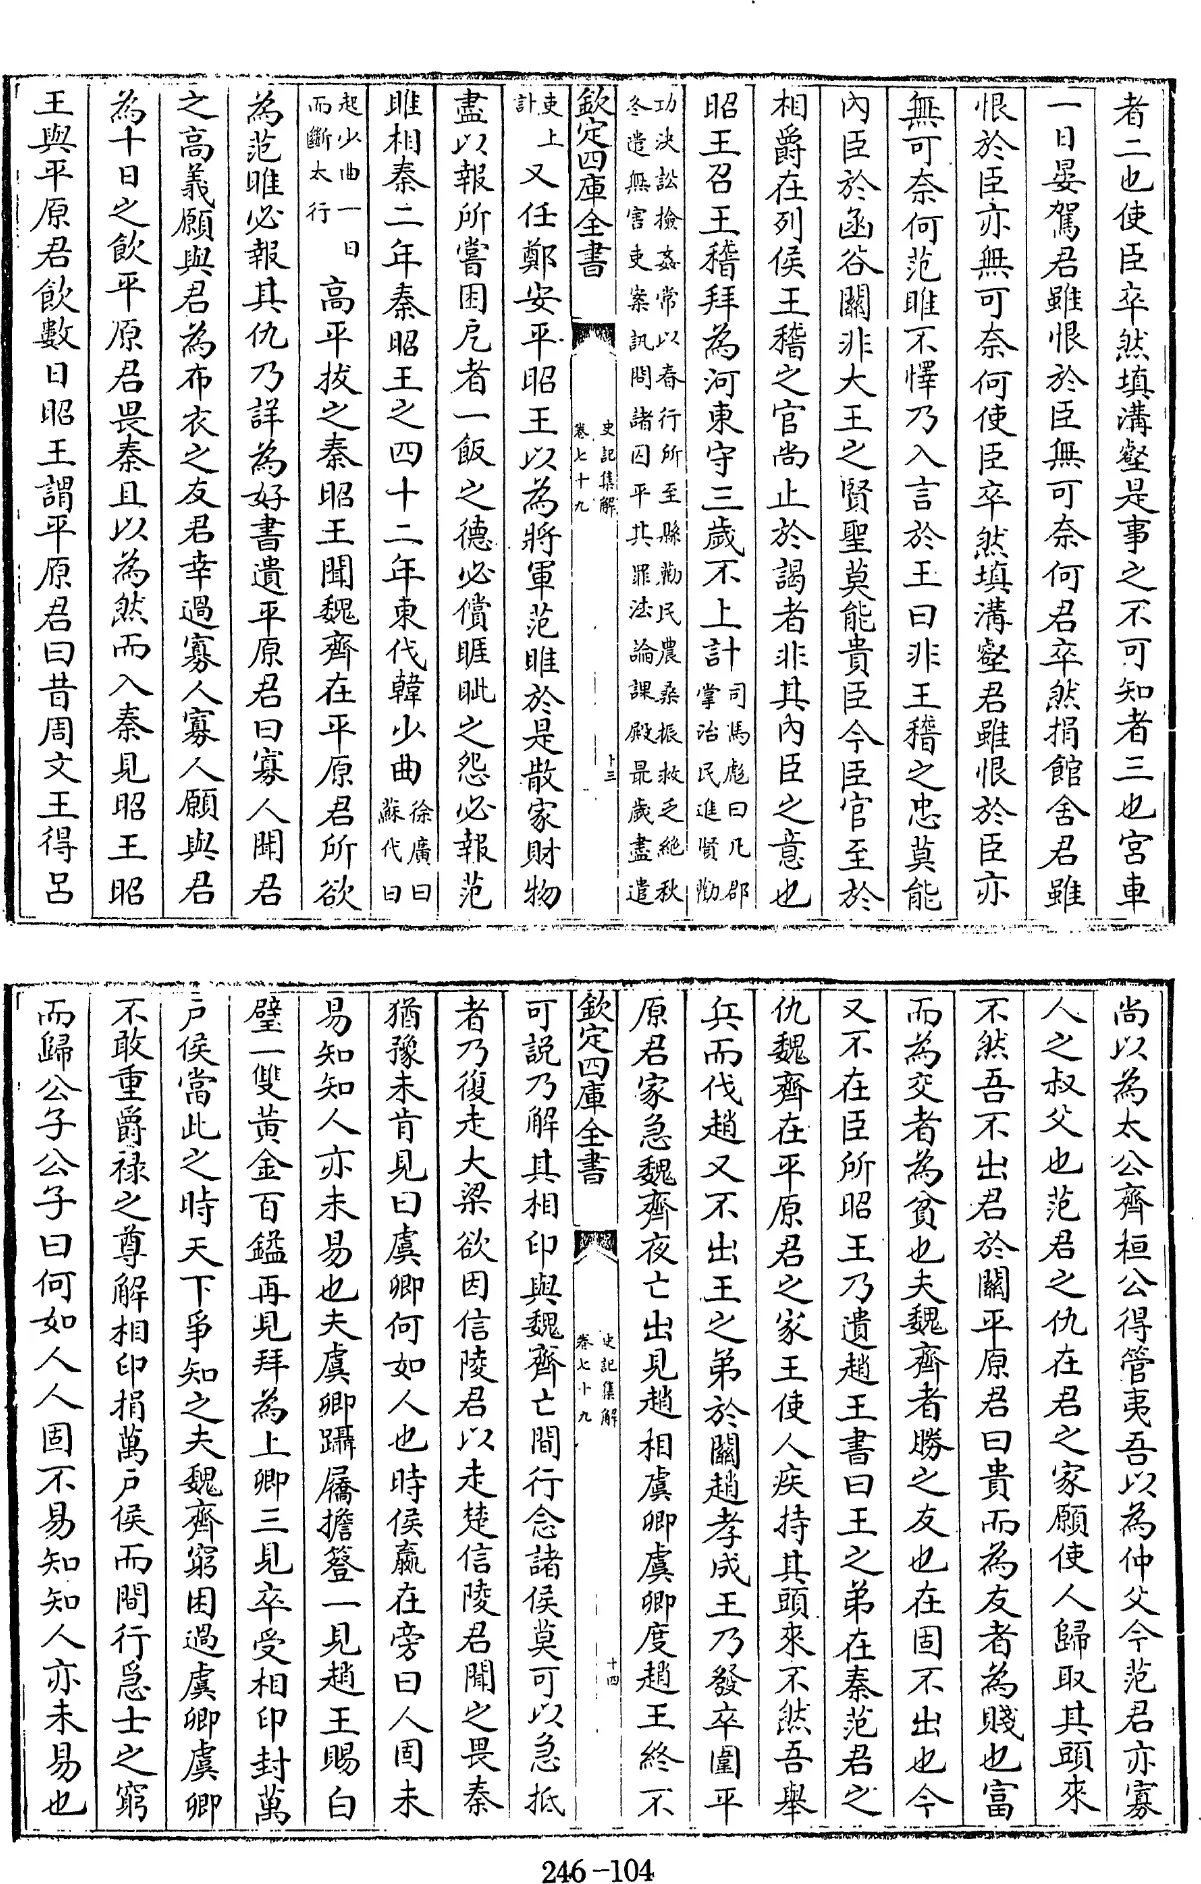 者二也使臣卒然填溝壑是事之不可知者三也宮車
一日晏駕君雖恨於臣無可奈何君卒然捐館舍君雖
恨於臣亦無可奈何使臣卒然填溝壑君雖恨於臣亦
無可奈何范睢不懌乃入言於王曰非王稽之忠莫能
內臣於函谷關非大王之賢聖莫能貴臣今臣官至於
相爵在列侯王稽之官尚止於謁者非其內臣之意也
昭王召王稽拜為河東守三歲不上計司馬彪曰凡郡掌治民進賢勸
功決訟檢姦常以春行所至縣勸民農桑振救乏絕秋
冬遣無害吏案訊問諸囚平其罪法論課殿最歲盡遣
欽定四庫全書 史記集解 卷七十九 十三
吏上計又任鄭安平昭王以為將軍范睢於是散家財物
盡以報所嘗困戹者一飯之德必償睚眦之怨必報范
睢相秦二年秦昭王之四十二年東伐韓少曲徐廣曰蘇代曰
起少曲一日而斷太行高平拔之秦昭王聞魏齊在平原君所欲
為范睢必報其仇乃詳為好書遺平原君曰寡人聞君
之高義願與君為布衣之友君幸過寡人寡人願與君
為十日之飲平原君畏秦且以為然而入秦見昭王昭
王與平原君飲數日昭王謂平原君曰昔周文王得呂
尚以為太公齊桓公得管夷吾以為仲父今范君亦寡
人之叔父也范君之仇在君之家願使人歸取其頭來
不然吾不出君於關平原君曰貴而為友者為賤也富
而為交者為貧也夫魏齊者勝之友也在固不出也今
又不在臣所昭王乃遺趙王書曰王之弟在秦范君之
仇魏齊在平原君之家王使人疾持其頭來不然吾舉
兵而伐趙又不出王之弟於關趙孝成王乃發卒圍平
原君家急魏齊夜亡出見趙相虞卿虞卿度趙王終不
欽定四庫全書 史記集解 卷七十九 十四
可說乃解其相印與魏齊亡間行念諸侯莫可以急抵
者乃復走大梁欲因信陵君以走楚信陵君聞之畏秦
猶豫未肯見曰虞卿何如人也時侯嬴在旁曰人固未
易知知人亦未易也夫虞卿躡屩擔簦一見趙王賜白
璧一雙黃金百鎰再見拜為上卿三見卒受相印封萬
戶侯當此之時天下爭知之夫魏齊窮困過虞卿虞卿
不敢重爵祿之尊解相印捐萬戶侯而間行急士之窮
而歸公子公子曰何如人人固不易知知人亦未易也
246-104